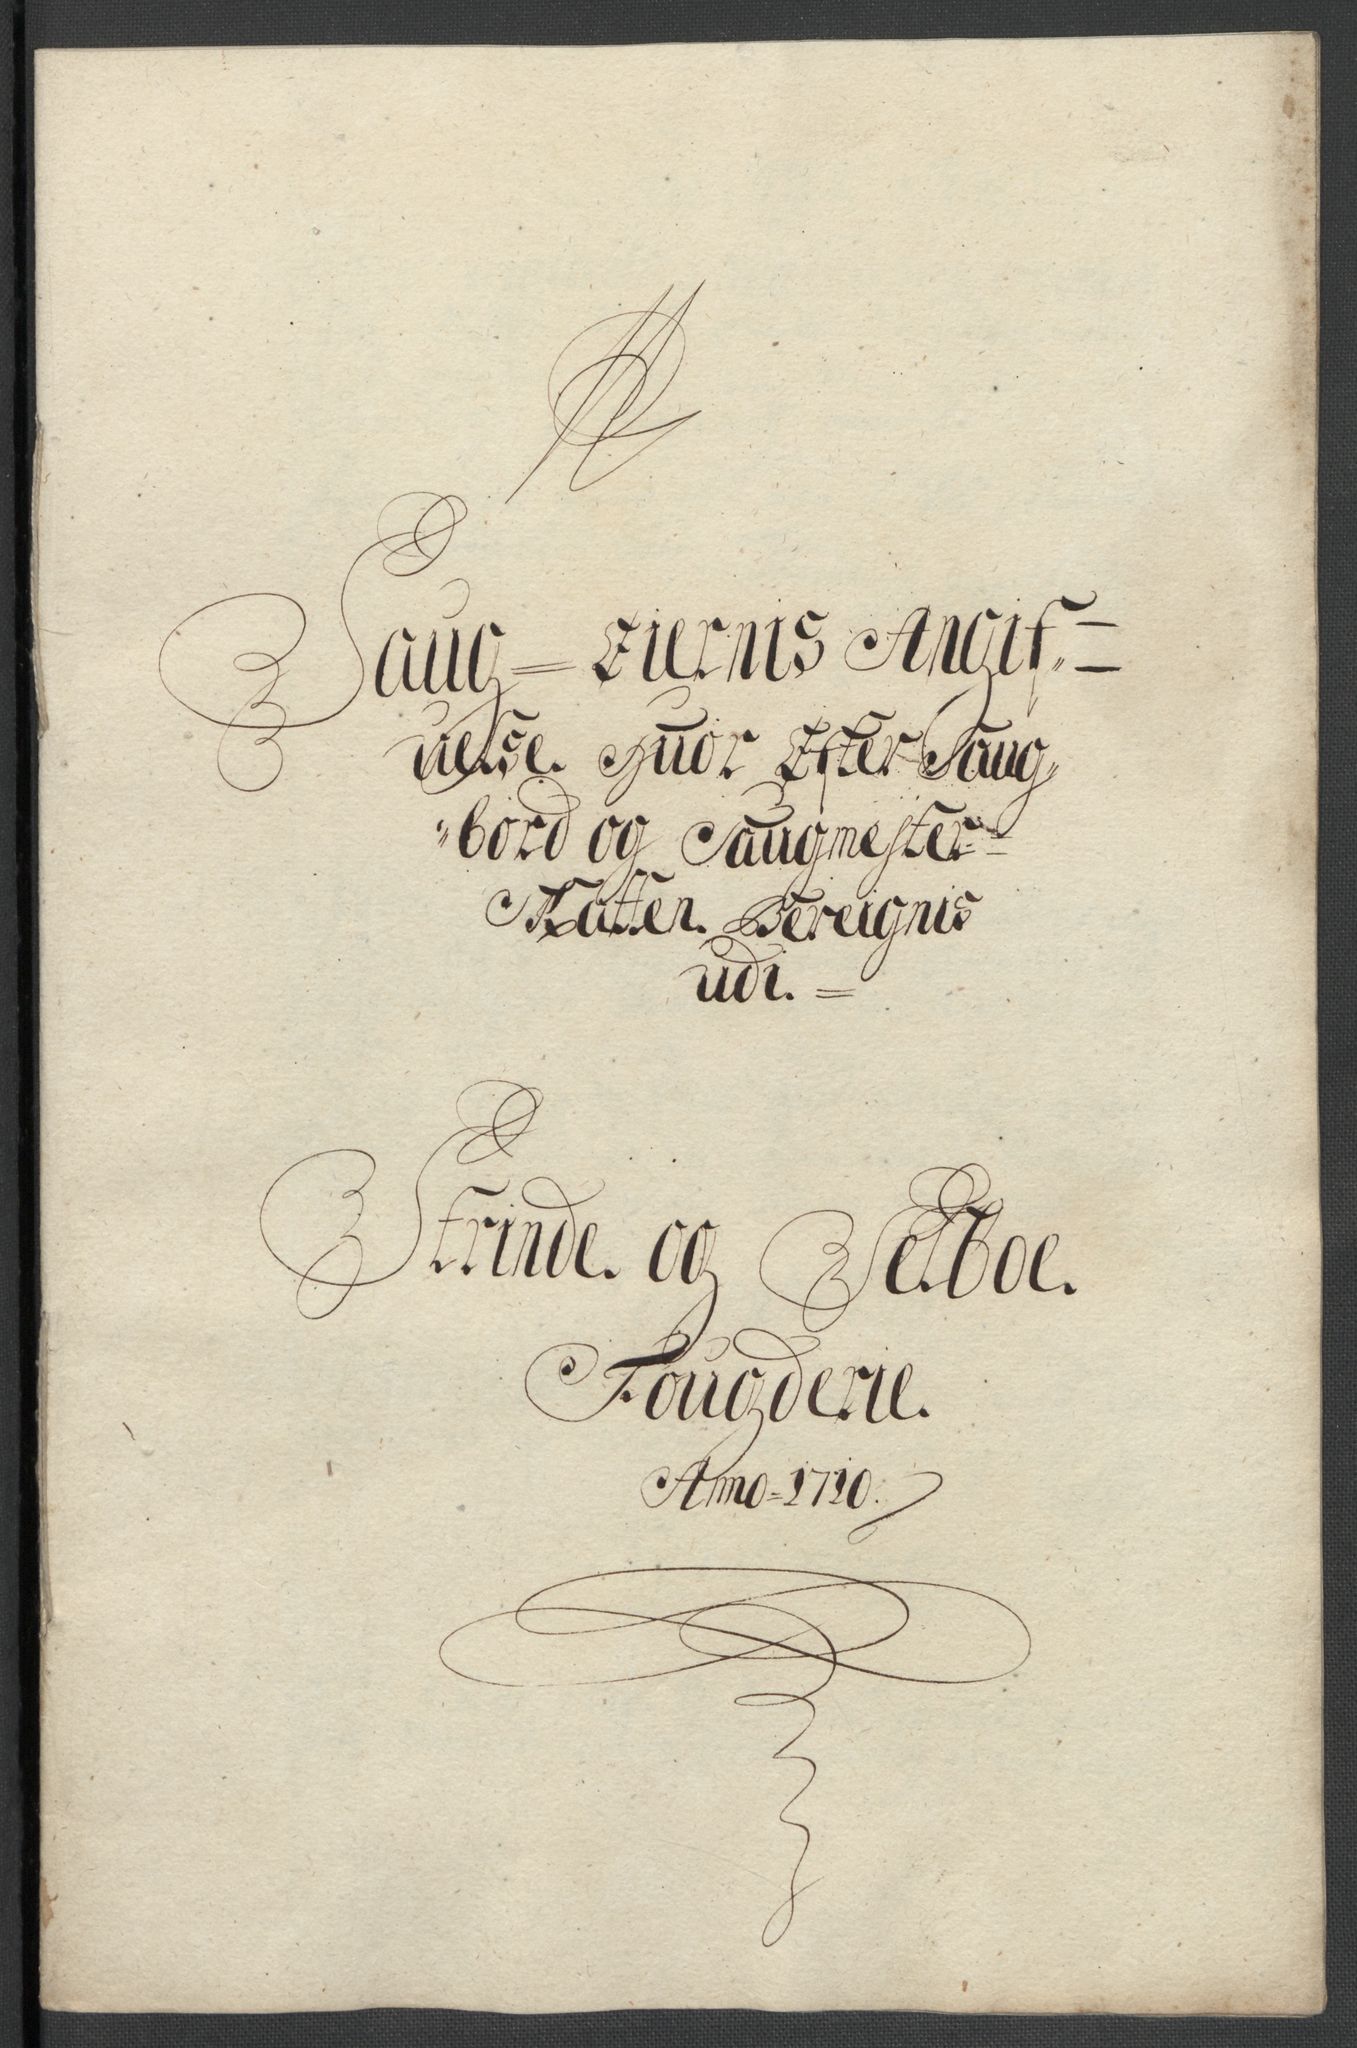 Saug = Eiernis Angif =
uelse. Huor Efter Saug
bord og Saugmester =
Skatten. Bereignis
udi. =
Strinde. og Selboe.
Fougderie.
Anno = 1710.